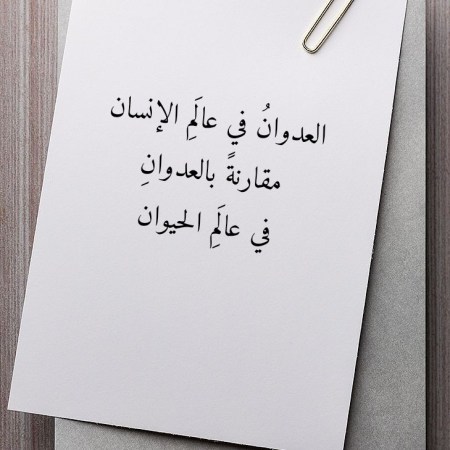 العدوانُ في عالَمِ الإنسان
مقارنةً بالعدوانِ
في عالَمِ الحيوان